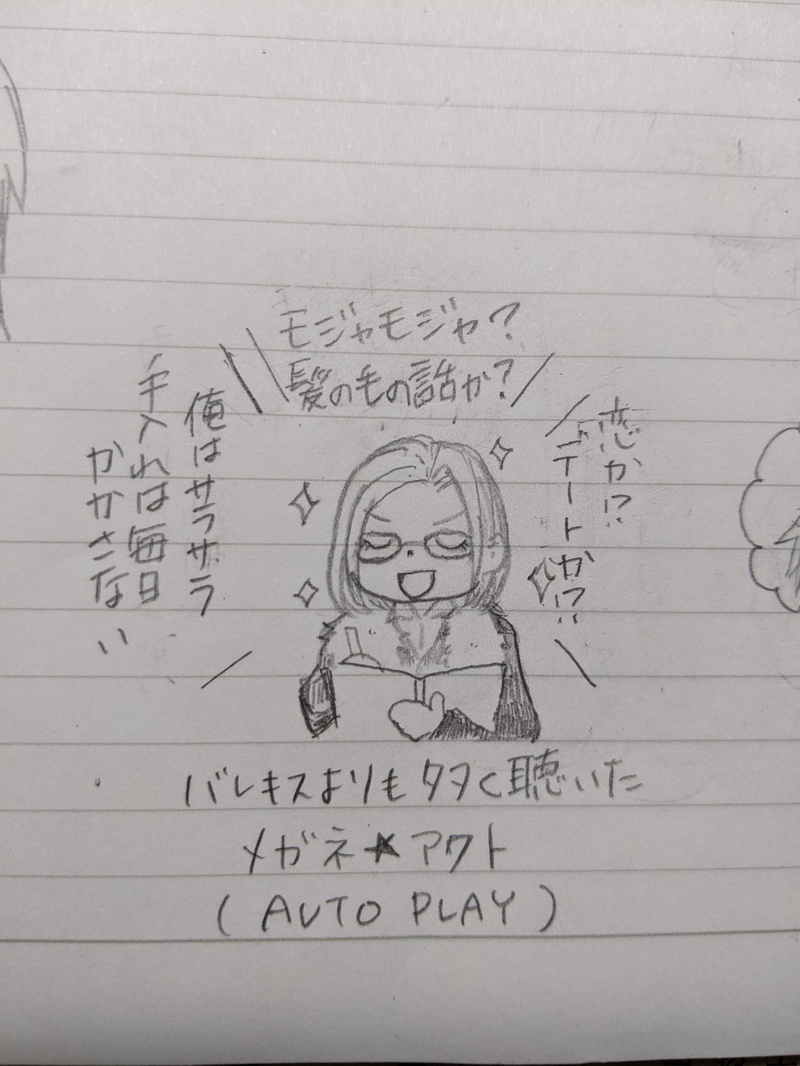 モジャモジャ?
髪の毛の話か?
恋か!?
デートか!?
俺はサラサラ
手入れは毎日
かかさない
バレキスよりも多く聴いた
メガネ★アクト
(AUTO PLAY)